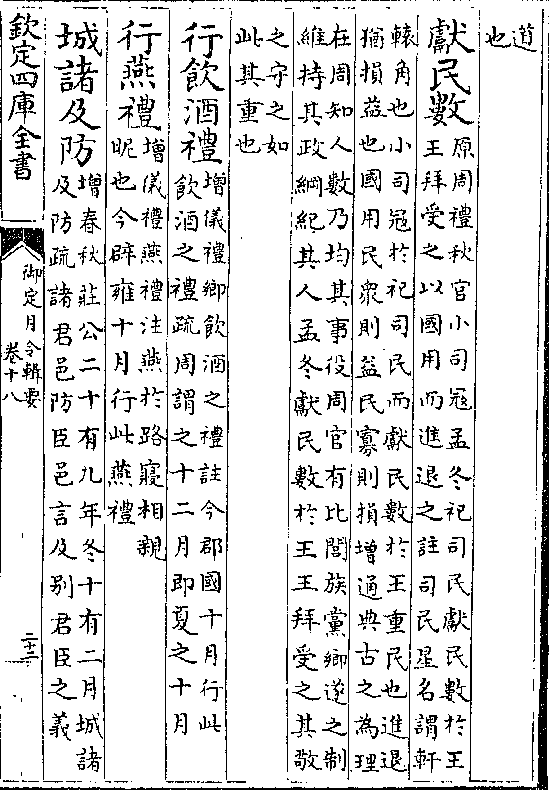 道
也
獻民數原周禮秋官小司冦孟冬祀司民獻民數於王
王拜受之以國用而進退之註司民星名謂軒
轅角也小司冦於祀司民而獻民數於王重民也進退
猶損益也國用民衆則益民寡則損增通典古之為理
在周知人數乃均其事役周官有比閭族黨鄉遂之制
維持其政綱紀其人孟冬獻民數於王王拜受之其敬
之守之如
此其重也
行飲酒禮增儀禮鄉飲酒之禮註今郡國十月行此
飲酒之禮疏周謂之十二月即夏之十月
行燕禮增儀禮燕禮注燕於路寢相親
昵也今辟雍十月行此燕禮
城諸及防增春秋莊公二十有九年冬十有二月城諸
及防疏諸君邑防臣邑言及别君臣之義
欽定四庫全書
御定月令輯要
卷十八
二十二